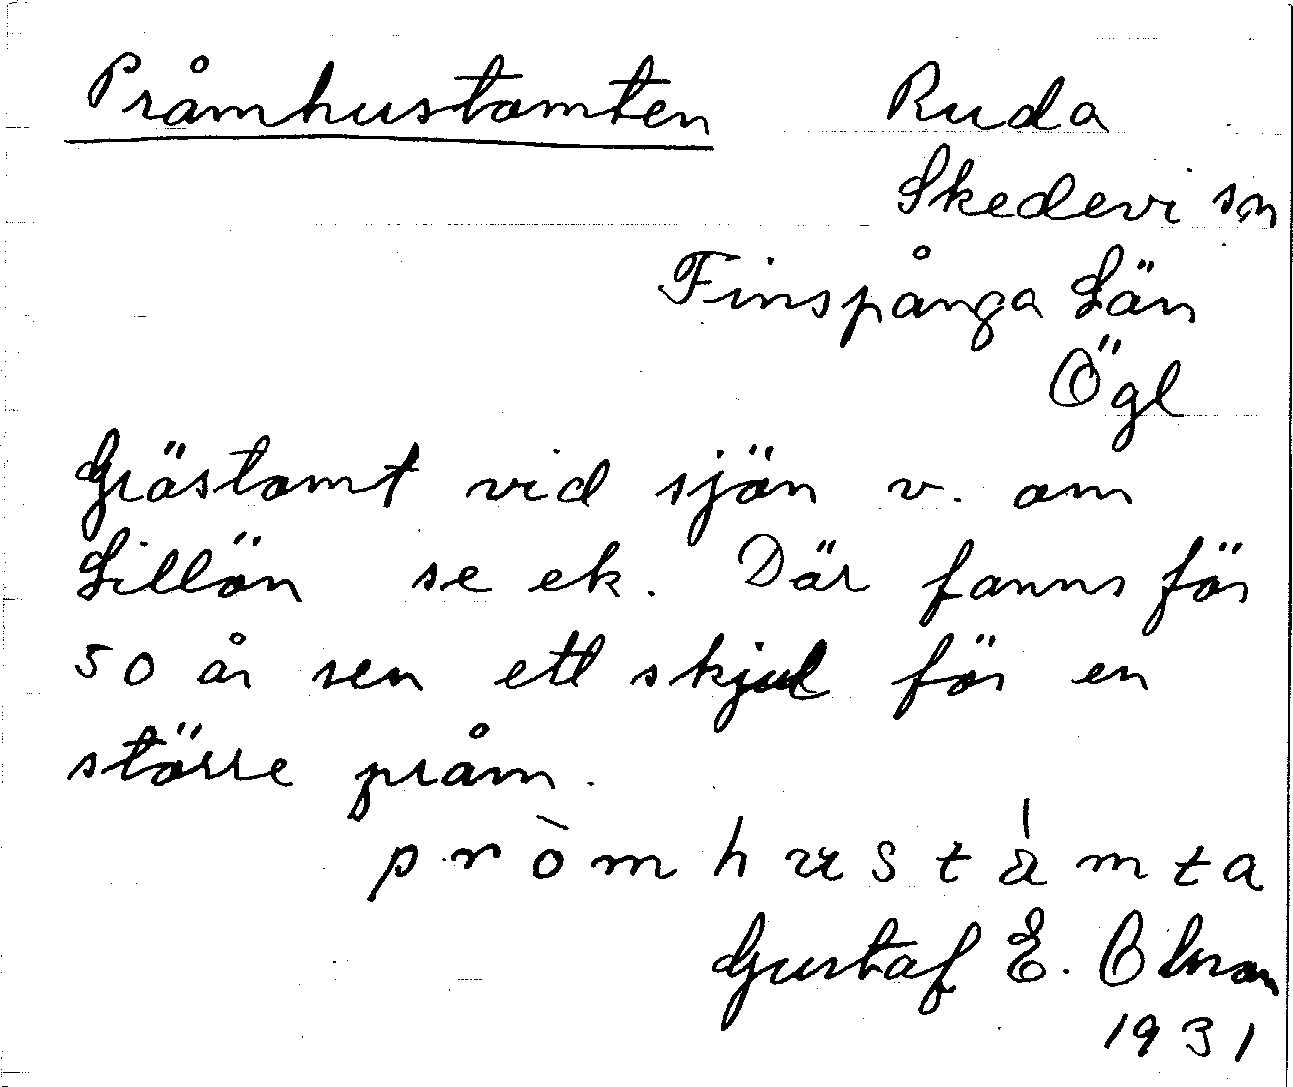 Pråmhustomten Ruda
Skedevi sn
Finspånga Län
Ögl
Grästomt vid sjön v. om
Lillön se ek. Där fanns för
50 år sen ett skjul för en
större pråm.
pròmhustàmta
Gustaf E. Olsson
1931